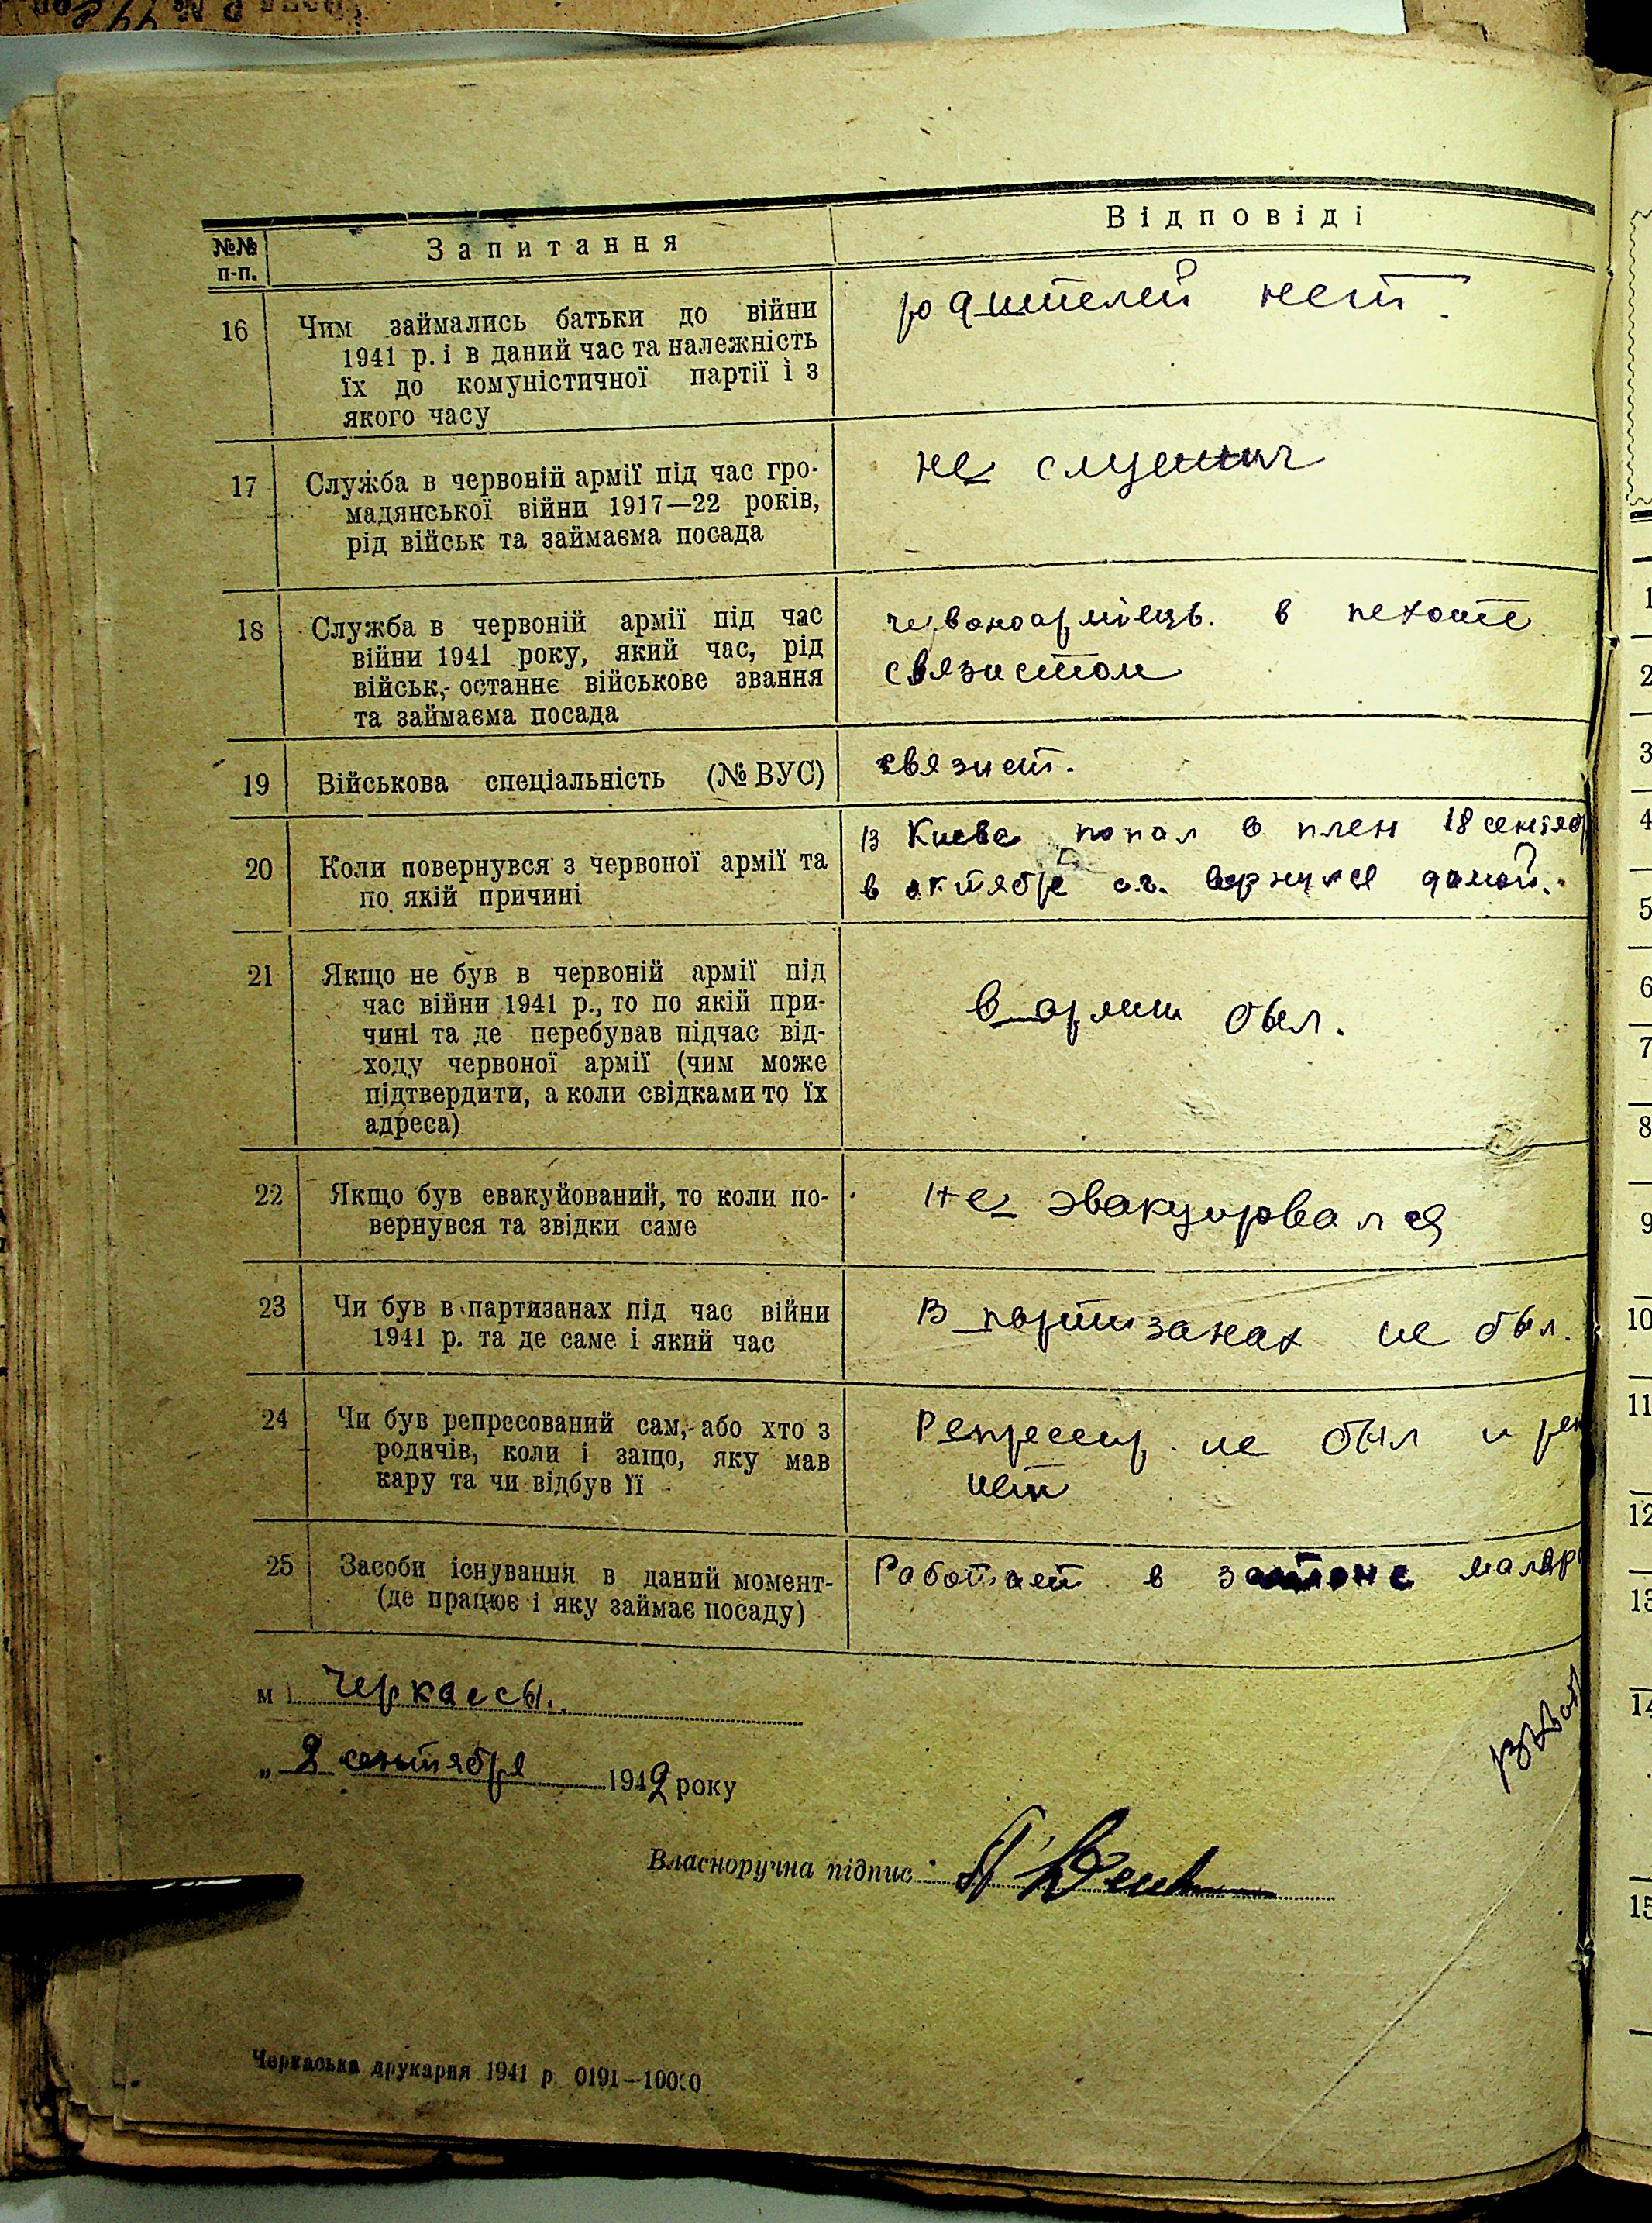 №№ п-п.
Запитання
Відповіді
16
Чим займались батьки до війни
1941 р. і в даний час та належність
їх до комуністичної партії і з
якого часу
родителей нет.
17
Служба в червоній армії під час гро-
мадянської війни 1917—22 років,
рід військ та займаєма посада
не служил
18
Служба в червоній армії під час
війни 1941 року, який час, рід
військ, останнє військове звання
та займаєма посада
червоноармієць. в пехоте
связистом
19
Військова спеціальність (№ ВУС)
связист.
20
Коли повернувся з червоної армії та
по якій причині
В Киеве попал в плен 18 сентяб
в октябре с.г. вернулся домой.
21
Якщо не був в червоній армії під
час війни 1941 р., то по якій при-
чині та де перебував підчас від-
ходу червоної армії (чим може
підтвердити, а коли свідками то їх
адреса)
в армии был.
22
Якщо був евакуйований, то коли по-
вернувся та звідки саме
Не эвакуировался
23
Чи був в партизанах під час війни
1941 р. та де саме і який час
В партизанах не был.
24
Чи був репресований сам, або хто з
родичів, коли і защо, яку мав
кару та чи відбув її
Репрессир. не был и
нет
25
Засоби існування в даний момент-
(де працює і яку займає посаду)
Работает в маляр
м Черкассы.
„ 2 сентября 1942 року
Власноручна підпис
Черкаська друкарня 1941 р. 0191—10000
1
2
3
4
5
6
7
8
9
10
11
12
13
14
15